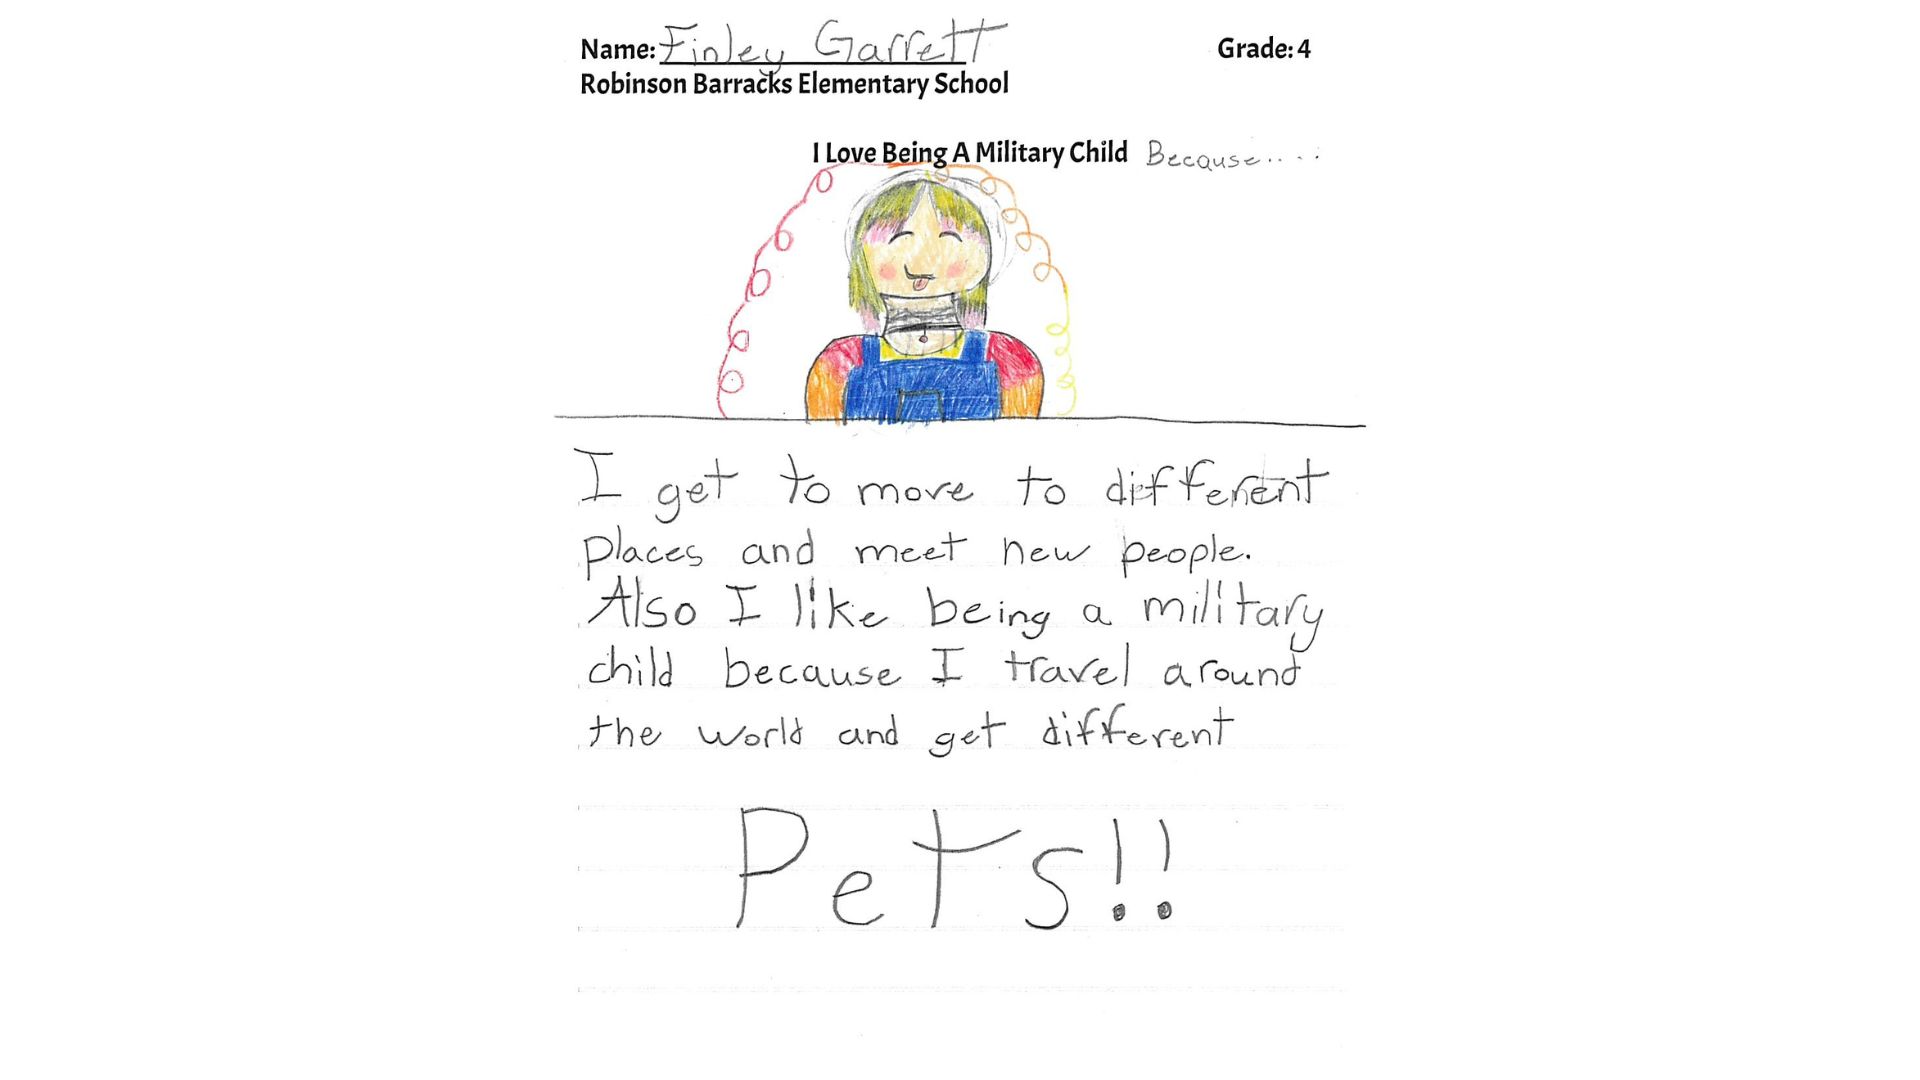 Name: Finley Garrett
Grade: 4
Robinson Barracks Elementary School
I Love Being A Military Child Because....
I get to move to different
places and meet new people.
Also I like being a military
child because I travel around
the world and get different
Pets!!